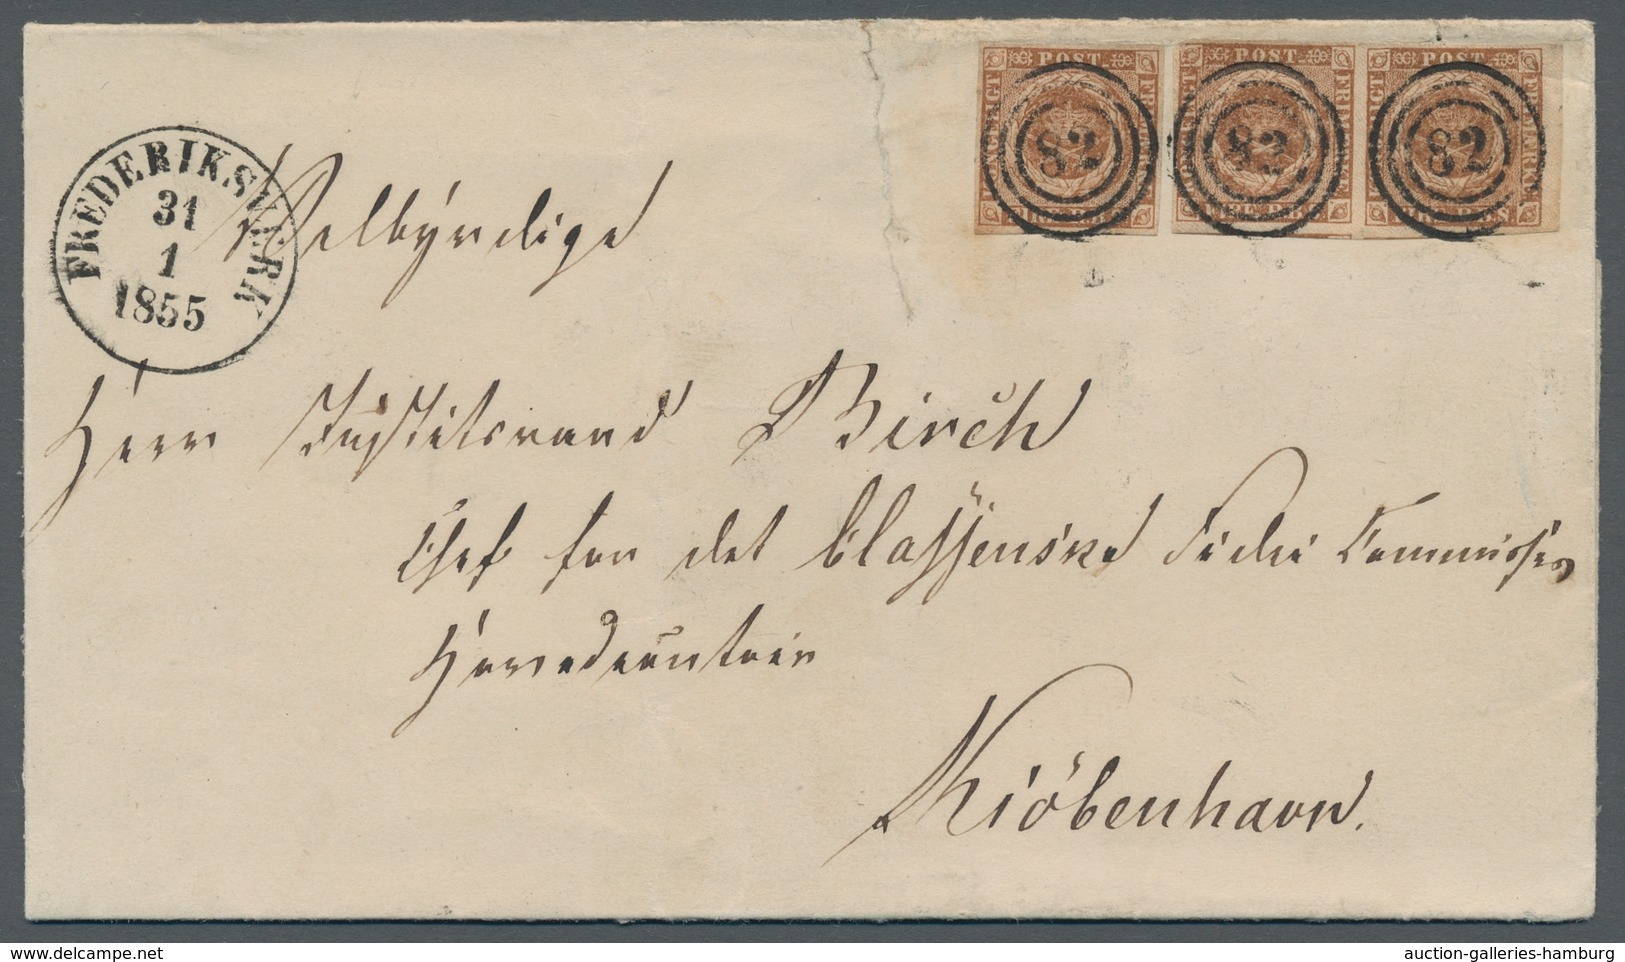 FREDERIKSVÆRK
31
1
1855
POST
82
POST
82
POST
82
Velbyrdige
Herr Justitsraad Birch
Chef for det Classenske Fidei Commisses
Hovedcontoir
Kiöbenhavn.
delcampe.net
auction-galleries-hamburg